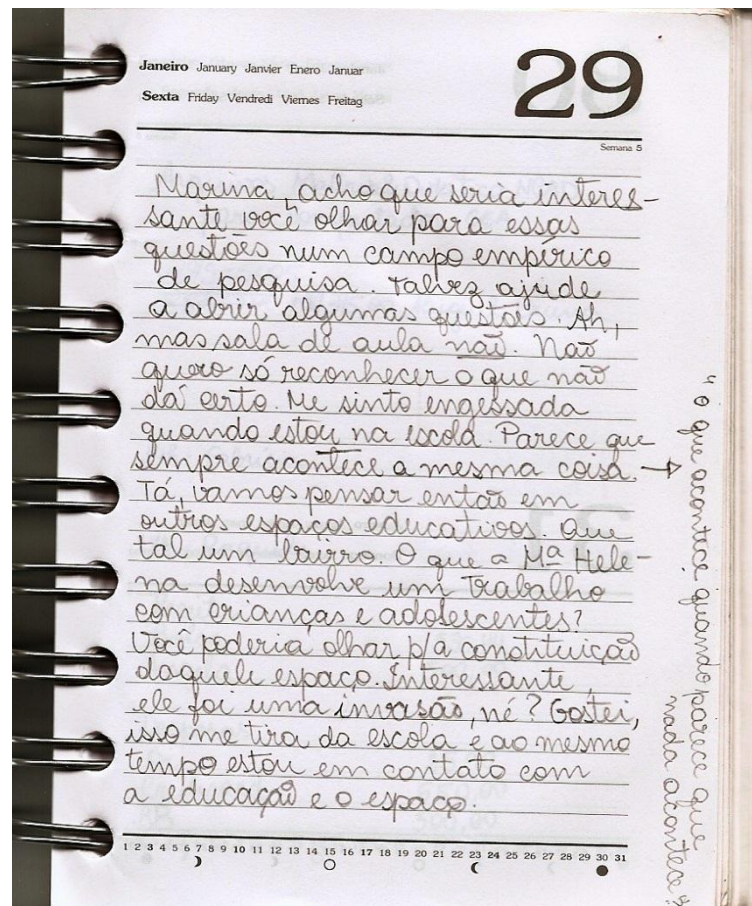 Janeiro January Janvier Enero Januar
29
Sexta Friday Vendredi Viernes Freitag
Semana 5
Marina, acho que seria interes-
sante você olhar para essas
questões num campo empírico
de pesquisa. Talvez ajude
a abrir algumas questões. Ah,
mas sala de aula não. Não
quero só reconhecer o que não
dá certo. Me sinto engessada
quando estou na escola. Parece que
sempre acontece a mesma coisa. →
Tá, vamos pensar então em
outros espaços educativos. Que
tal um bairro. O que a Mª Hele-
na desenvolve um trabalho
com crianças e adolescentes?
Você poderia olhar p/a constituição
daquele espaço. Interessante,
ele foi uma invasão, né? Gostei,
isso me tira da escola e ao mesmo
tempo estou em contato com
a educação e o espaço.
"o que acontece quando parece que
nada acontece"
1 2 3 4 5 6 7 8 9 10 11 12 13 14 15 16 17 18 19 20 21 22 23 24 25 26 27 28 29 30 31